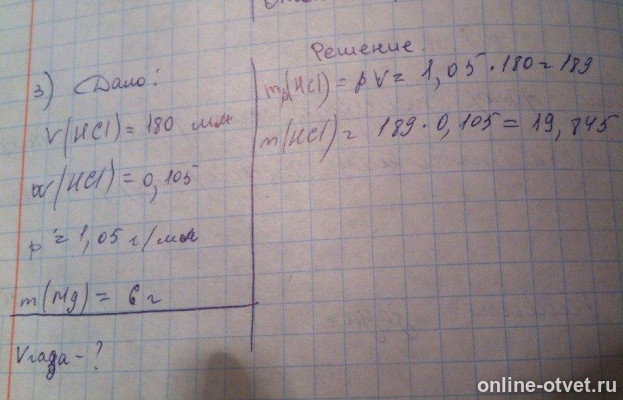 Решение.
3) Дано:
V(HCl) = 180 мл
ω(HCl) = 0,105
ρ = 1,05 г/мл
m(Mg) = 6 г
Vгаза - ?
mр(HCl) = ρV = 1,05 · 180 = 189
m(HCl) = 189 · 0,105 = 19,845
online-otvet.ru